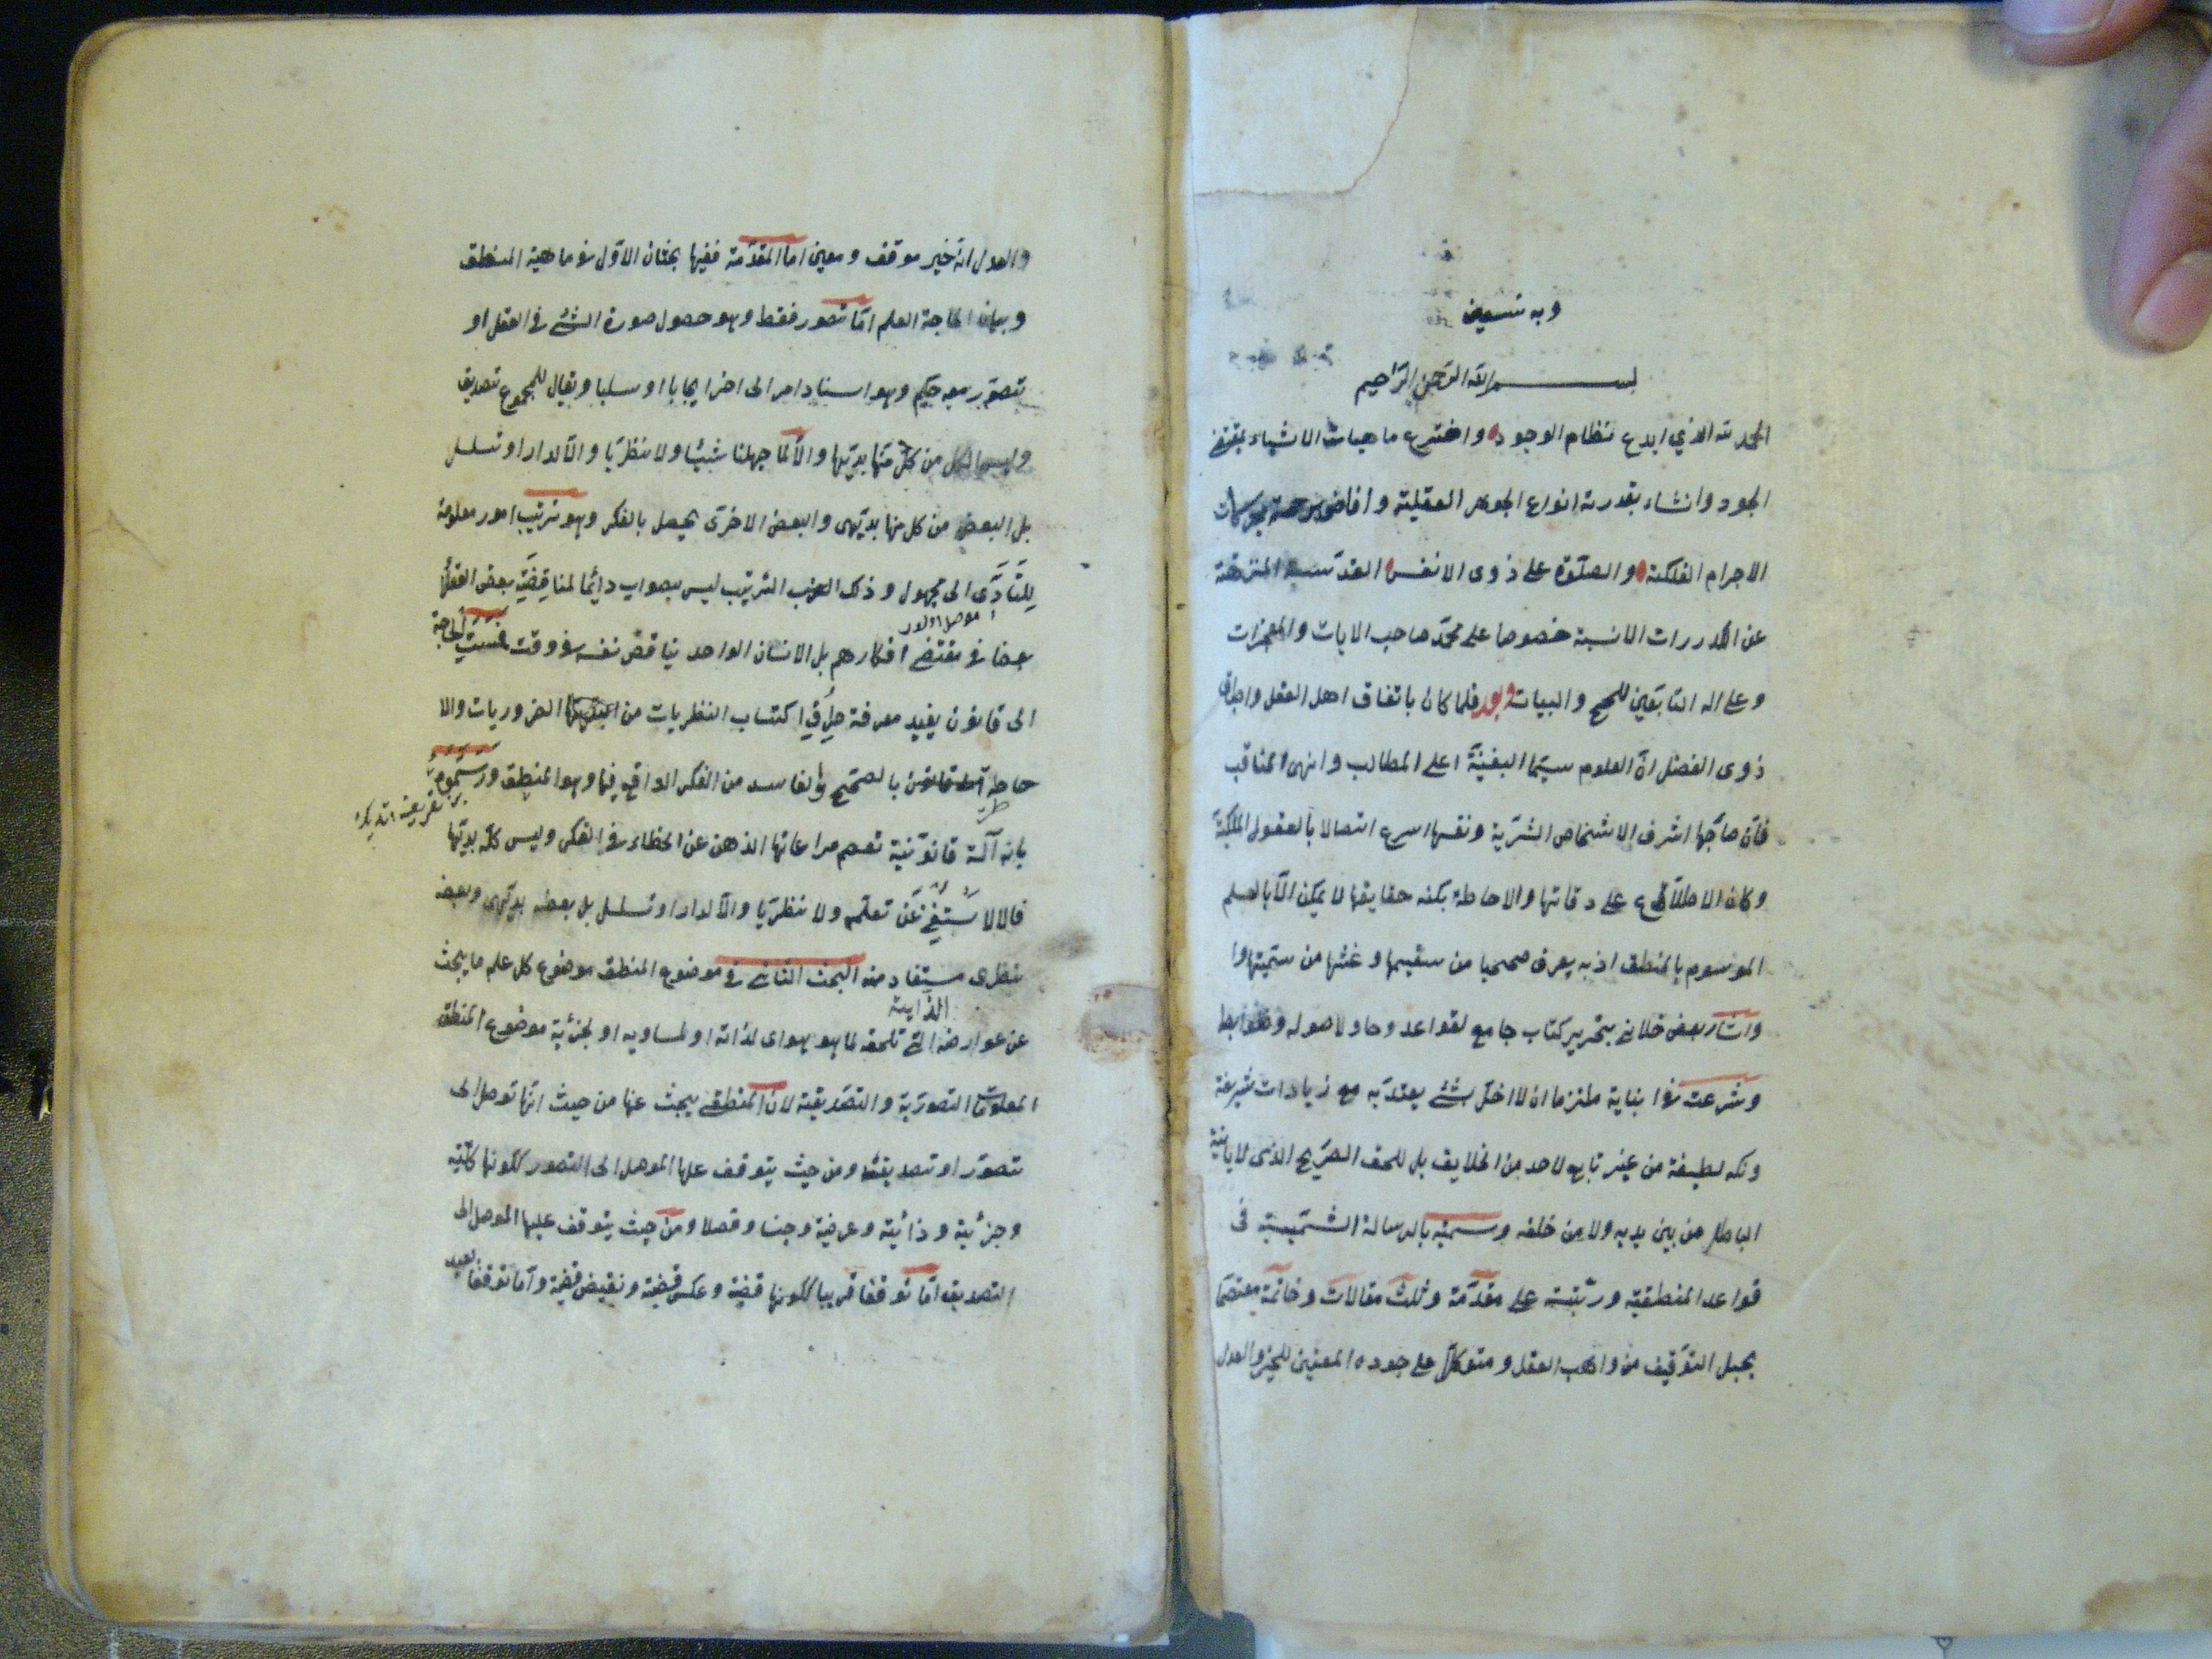 وبه نستعين
بسم الله الرحمن الرحيم
الحمد لله الذي ابدع نظام الوجود واخترع ماهيات الاشياء بمقتضى
الجود وانشاء بقدرته انواع الجواهر العقلية وافاض برحمته محركات
الاجرام الفلكية والصلوة على ذوى الانفس القدسية المنزهة
عن الكدورات الانسية خصوصا على محمد صاحب الايات والمعجزات
وعلى اله التابعين للحجج والبينات وبعد فلما كان باتفاق اهل العقل واطباق
ذوى الفضل ان العلوم سيما اليقينية اعلى المطالب وابهى المناقب
فان صاحبها اشرف الاشخاص البشرية ونفسه اسرع اتصالا بالعقول الملكية
وكان الاطلاع على دقائقها والاحاطة بكنه حقايقها لا يمكن الا بالعلم
الموسوم بالمنطق اذ به يعرف صحيحها من سقيمها وغثها من سمينها وا
واشار بعض خلانى بتحرير كتاب جامع لقواعد وحاو لاصوله وضوابط
وشرعت فى بنايه ملتزما ان لا اخل بشئ يعتد به مع زيادات شريفة
ونكه لطيفة من غير تابع لاحد من الخلايق بل للحق الصريح الذى لا ياتيه
الباطل من بين يديه ولا من خلفه وسميته بالرسالة الشمسية فى
قواعد المنطقية ورتبته على مقدمة وثلث مقالات وخاتمة معتصما
بحبل التوفيق من واهب العقل ومتوكلا على جوده المعين للخير والعدل
والعدل انه خير موفق ومعين اما المقدمة ففيها بحثان الاول فى ماهية المنطق
وبيان الحاجة العلم اما تصور فقط وهو حصول صورة الشئ فى العقل او
تصور معه حكم وهو اسناد امر الى اخر ايجابا او سلبا ويقال للمجموع تصديق
وليس الكل من كل منهما بديهيا والا لما جهلنا شيئا ولا نظريا والا لدار او تسلسل
بل البعض من كل منها بديهى والبعض الاخرى يحصل بالفكر وهو ترتيب امور معلومة
للتأدى الى مجهول وذلك الترتيب ليس بصواب دائما لمناقضة بعض العقلا
موصل اولور
بعضا فى مقتضى افكارهم بل الانسان الواحد يناقض نفسه فى وقت فمست الحاجة
الى قانون يفيد معرفة طرق اكتساب النظريات من الضروريات والا
حاطة بالصحيح والفاسد من الفكر الواقع فيها وهو المنطق ورسموه
بانه آلة قانونية تعصم مراعاتها الذهن عن الخطاء فى الفكر وليس كله بديهيا
والا لاستغنى عن تعلمه ولا نظريا والا لدار او تسلسل بل بعضه بديهى وبعضه
نظرى مستفاد منه البحث الثانى فى موضوع المنطق موضوع كل علم ما يبحث
الذاتية
عن عوارضه التى تلحقه لما هو هو اى لذاته او لمساويه او لجزئه موضوع المنطق
المعلومات التصورية والتصديقية لان المنطقى يبحث عنها من حيث انها توصل الى
تصور او تصديق ومن حيث يتوقف عليها الموصل الى التصور ككونها كلية
وجزئية وذاتية وعرضية وجنسا وفصلا ومن حيث يتوقف عليها الموصل الى
التصديق اما توقفا قريبا ككونها قضية وعكس قضية ونقيض قضية واما توقفا بعيد